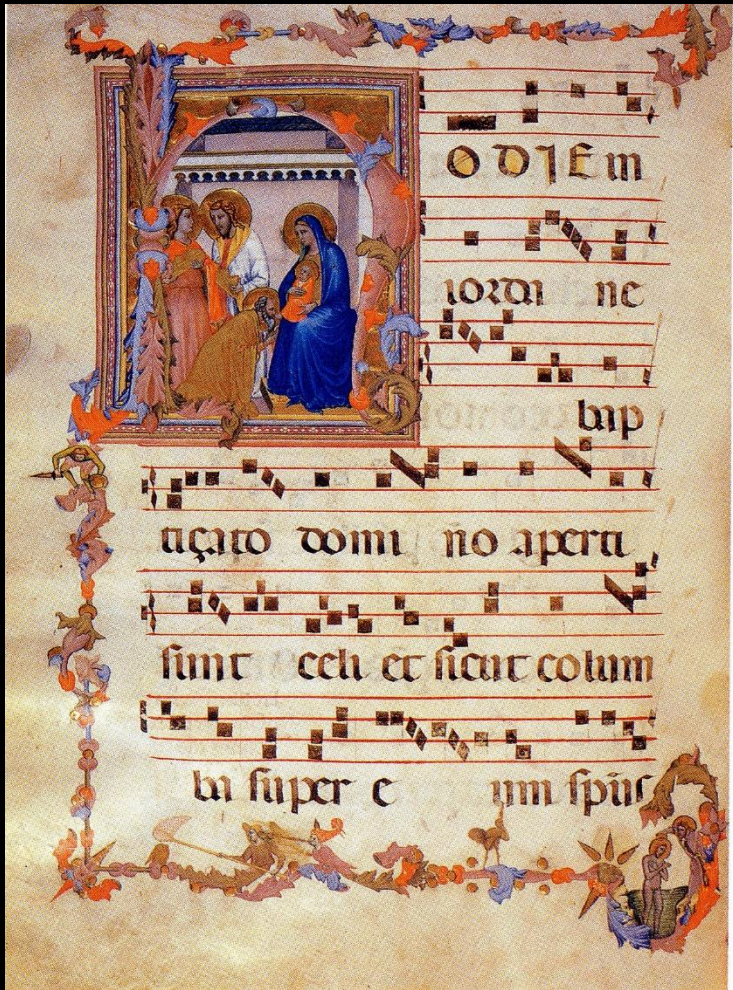 HODIE in
iorda ne
bap
tiçato domi no aperti
sunt celi et sicut colum
ba super e um spūs